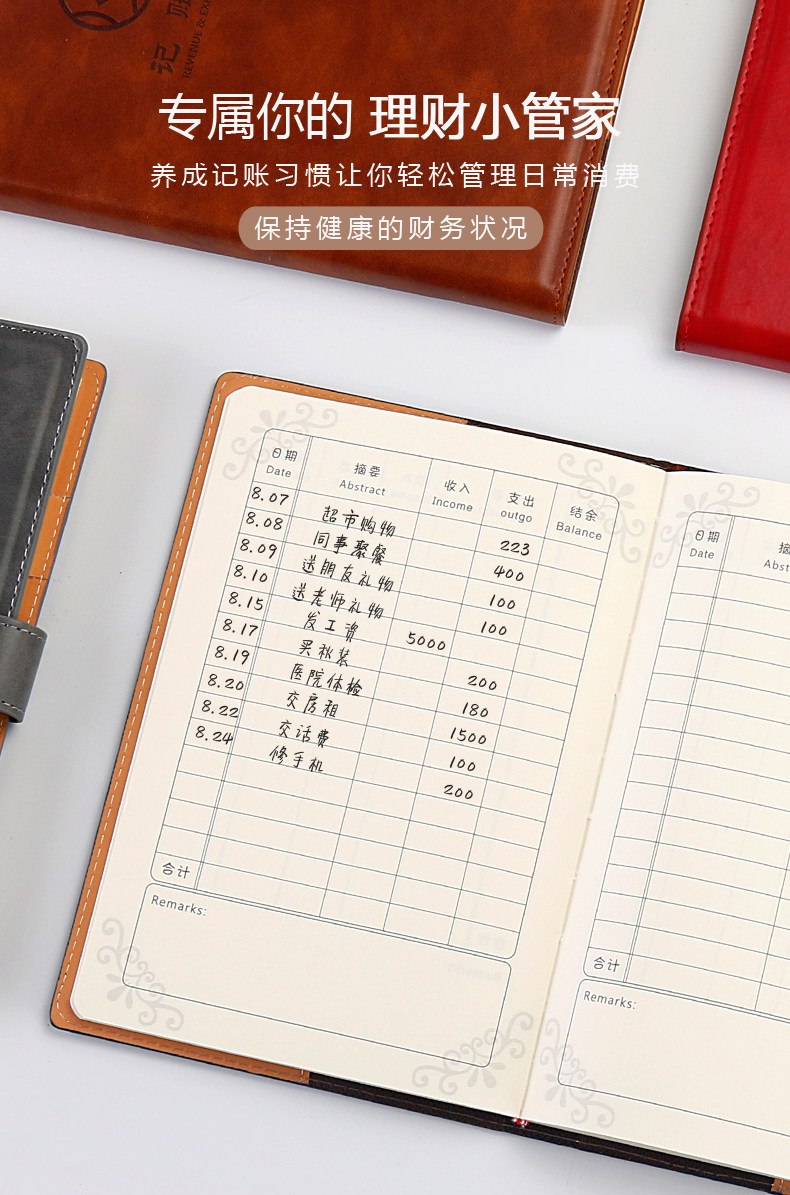 记 账
REVENUE & EX
专属你的 理财小管家
养成记账习惯让你轻松管理日常消费
保持健康的财务状况
日期 摘要 收入 支出 结余
Date Abstract Income outgo Balance
8.07 超市购物 223
8.08 同事聚餐 400
8.09 送朋友礼物 100
8.10 送老师礼物 100
8.15 发工资 5000
8.17 买秋装 200
8.19 医院体检 180
8.20 交房租 1500
8.22 交话费 100
8.24 修手机 200
合计
Remarks:
日期 摘
Date Abst
合计
Remarks: